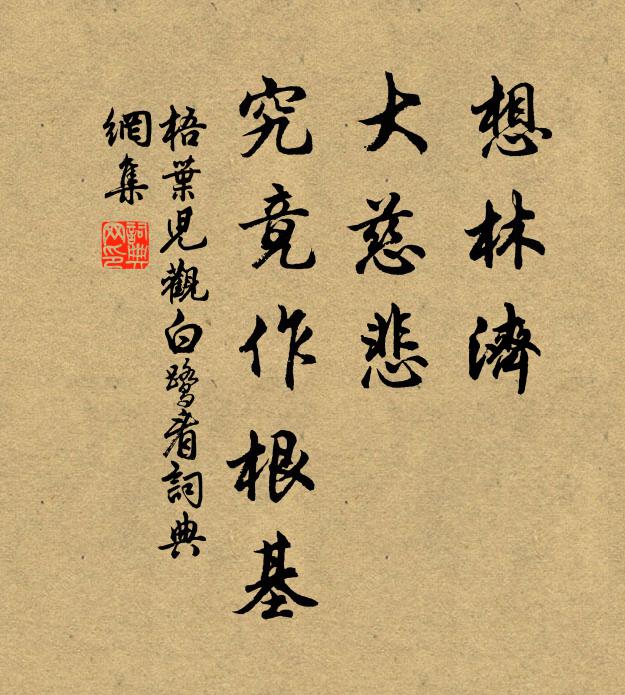 想林濟
大慈悲
究竟作根基
梧葉兒觀白鷺者詞典
網集
詞典
网印